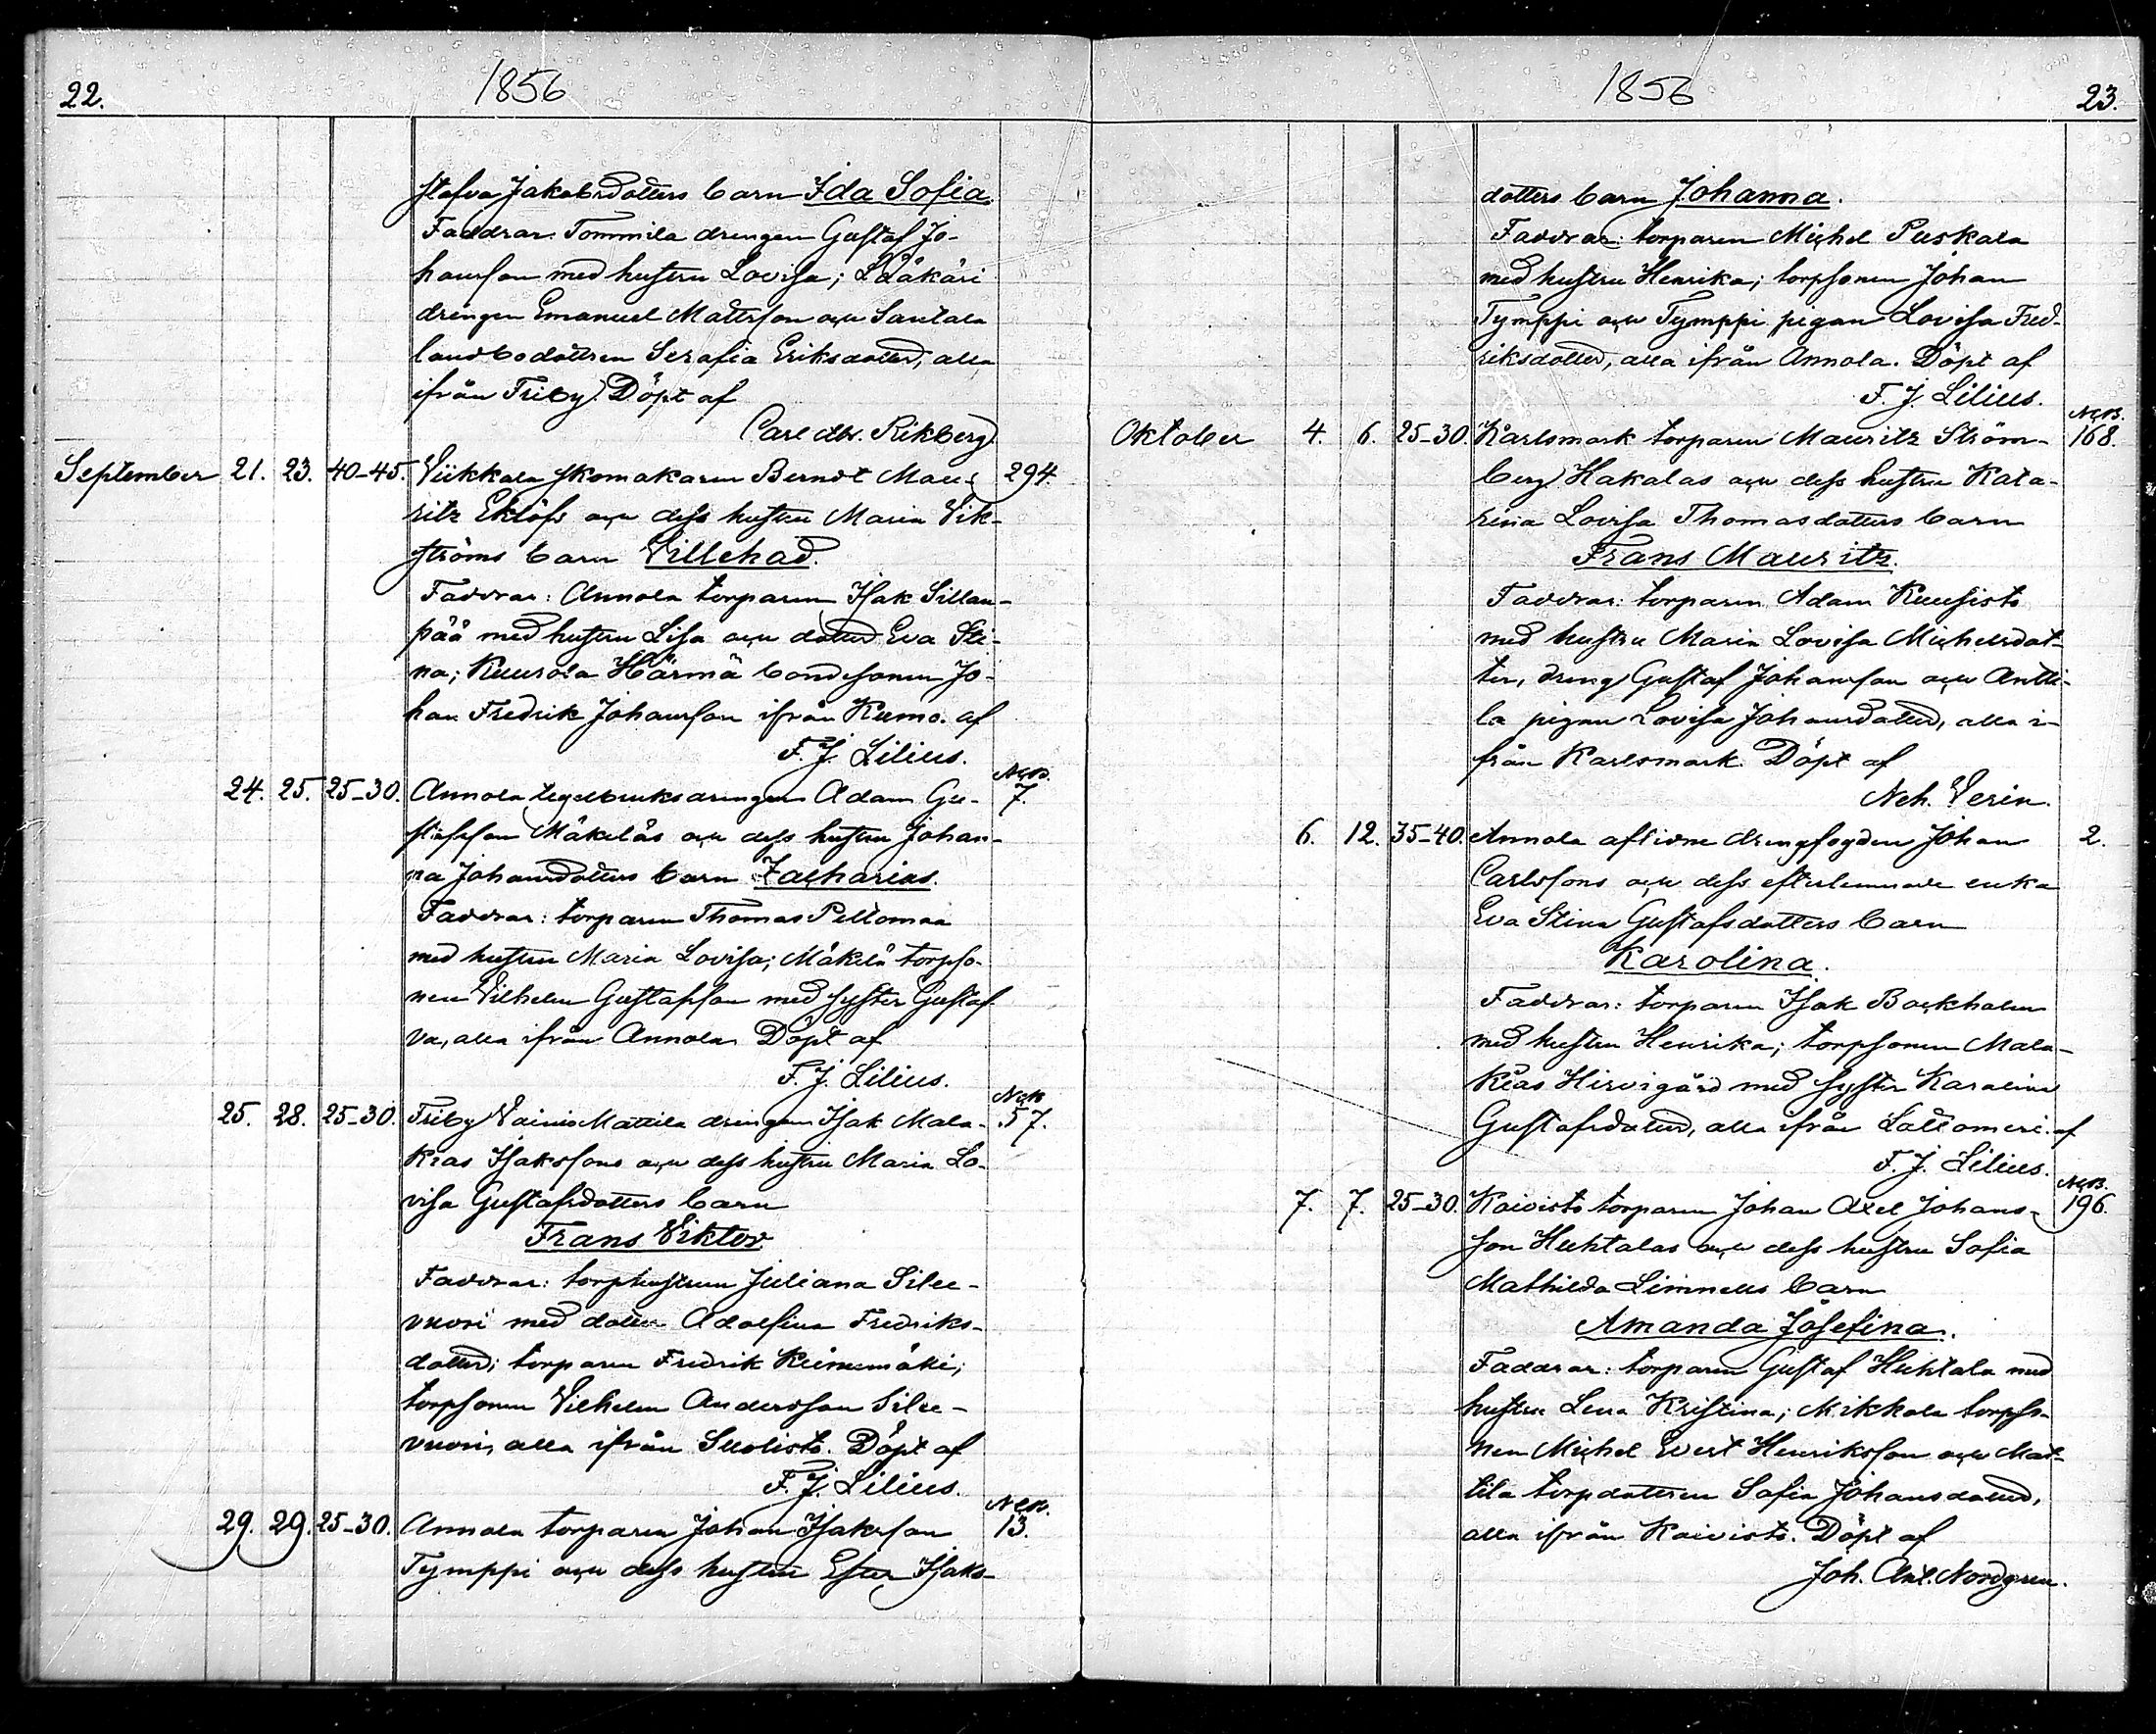 22.
1856
stafva Jakobsdotters barn Ida Sofia.
Faddrar: Tommila drengen Gustaf Jo-
hansson med hustru Lovisa; Lååkäri
drengen Emanuel Mattsson och Santala
landbodottren Serafia Eriksdotter, alla
ifrån Friby. Döpt af
Carl dw. Rikberg.
September 21. 23. 40-45. Viikkala skomakaren Berndt Mau- 294.
ritz Eklöfs och dess hustru Maria Vik-
ströms barn Villehad.
Faddrar: Annola torparen Isak Sillan-
pää med hustru Lisa och dotter Eva Sti-
na; Kuurola Härmä bondesonen Jo-
han Fredrik Johansson ifrån Kumo. af
F. J. Lilius.
24. 25. 25-30. Annola tegelbruksdrengen Adam Gu- NgB. 7.
stafsson Mäkeläs och dess hustru Johan-
na Johansdotters barn Zacharias.
Faddrar: torparen Thomas Peltomaa
med hustru Maria Lovisa; Mäkelä torpso-
nen Vilhelm Gustafsson med syster Gustaf-
va, alla ifrån Annola. Döpt af
F. J. Lilius.
25. 28. 25-30. Friby Vainio Mattila drengen Isak Mala- 57.
kias Isakssons och dess hustru Maria Lo-
visa Gustafsdotters barn
Frans Viktor
Faddrar: torphustrun Juliana Silee-
vuori med dotter Adolfina Fredriks-
dotter; torparen Fredrik Keinimäki;
torpsonen Vilhelm Andersson Silee-
vuori, alla ifrån Suolisto. Döpt af
F. J. Lilius.
29. 29. 25-30. Annola torparen Johan Isaksson 13.
Tymppi och dess hustru Ester Isaks-
1856
23.
dotters barn Johanna.
Faddrar: torparen Michel Puskala
med hustru Henrika; torpsonen Johan
Tymppi och Tymppi pigan Lovisa Fred-
riksdotter, alla ifrån Annola. Döpt af
F. J. Lilius.
Oktober 4. 6. 25-30. Karlsmark torparen Mauritz Ström- NgB. 168.
berg Hakalas och dess hustru Kata-
rina Lovisa Thomasdotters barn
Frans Mauritz.
Faddrar: torparen Adam Kuusisto
med hustru Maria Lovisa Michelsdot-
ter, dreng Gustaf Johansson och Antti-
la pigan Lovisa Johansdotter, alla i-
från Karlsmark. Döpt af
Neh. Verin.
6. 12. 35-40. Annola aflidne drengfogden Johan 2.
Carlssons och dess efterlemnade enka
Eva Stina Gustafsdotters barn
Karolina.
Faddrar: torparen Isak Backholm
med hustru Henrika; torpsonen Mala-
kias Hirvigård med syster Karolina
Gustafsdotter, alla ifrån Lattomeri. af
F. J. Lilius.
7. 7. 25-30. Koivisto torparen Johan Axel Johans- NgB. 196.
son Huhtalas och dess hustru Sofia
Mathilda Limnells barn
Amanda Josefina.
Faddrar: torparen Gustaf Huhtala med
hustru Lena Kristina; Mikkola torpso-
nen Michel Evert Henriksson och Mat-
tila torpdottren Sofia Johansdotter,
alla ifrån Koivisto. Döpt af
Joh. Axl. Nordgren.